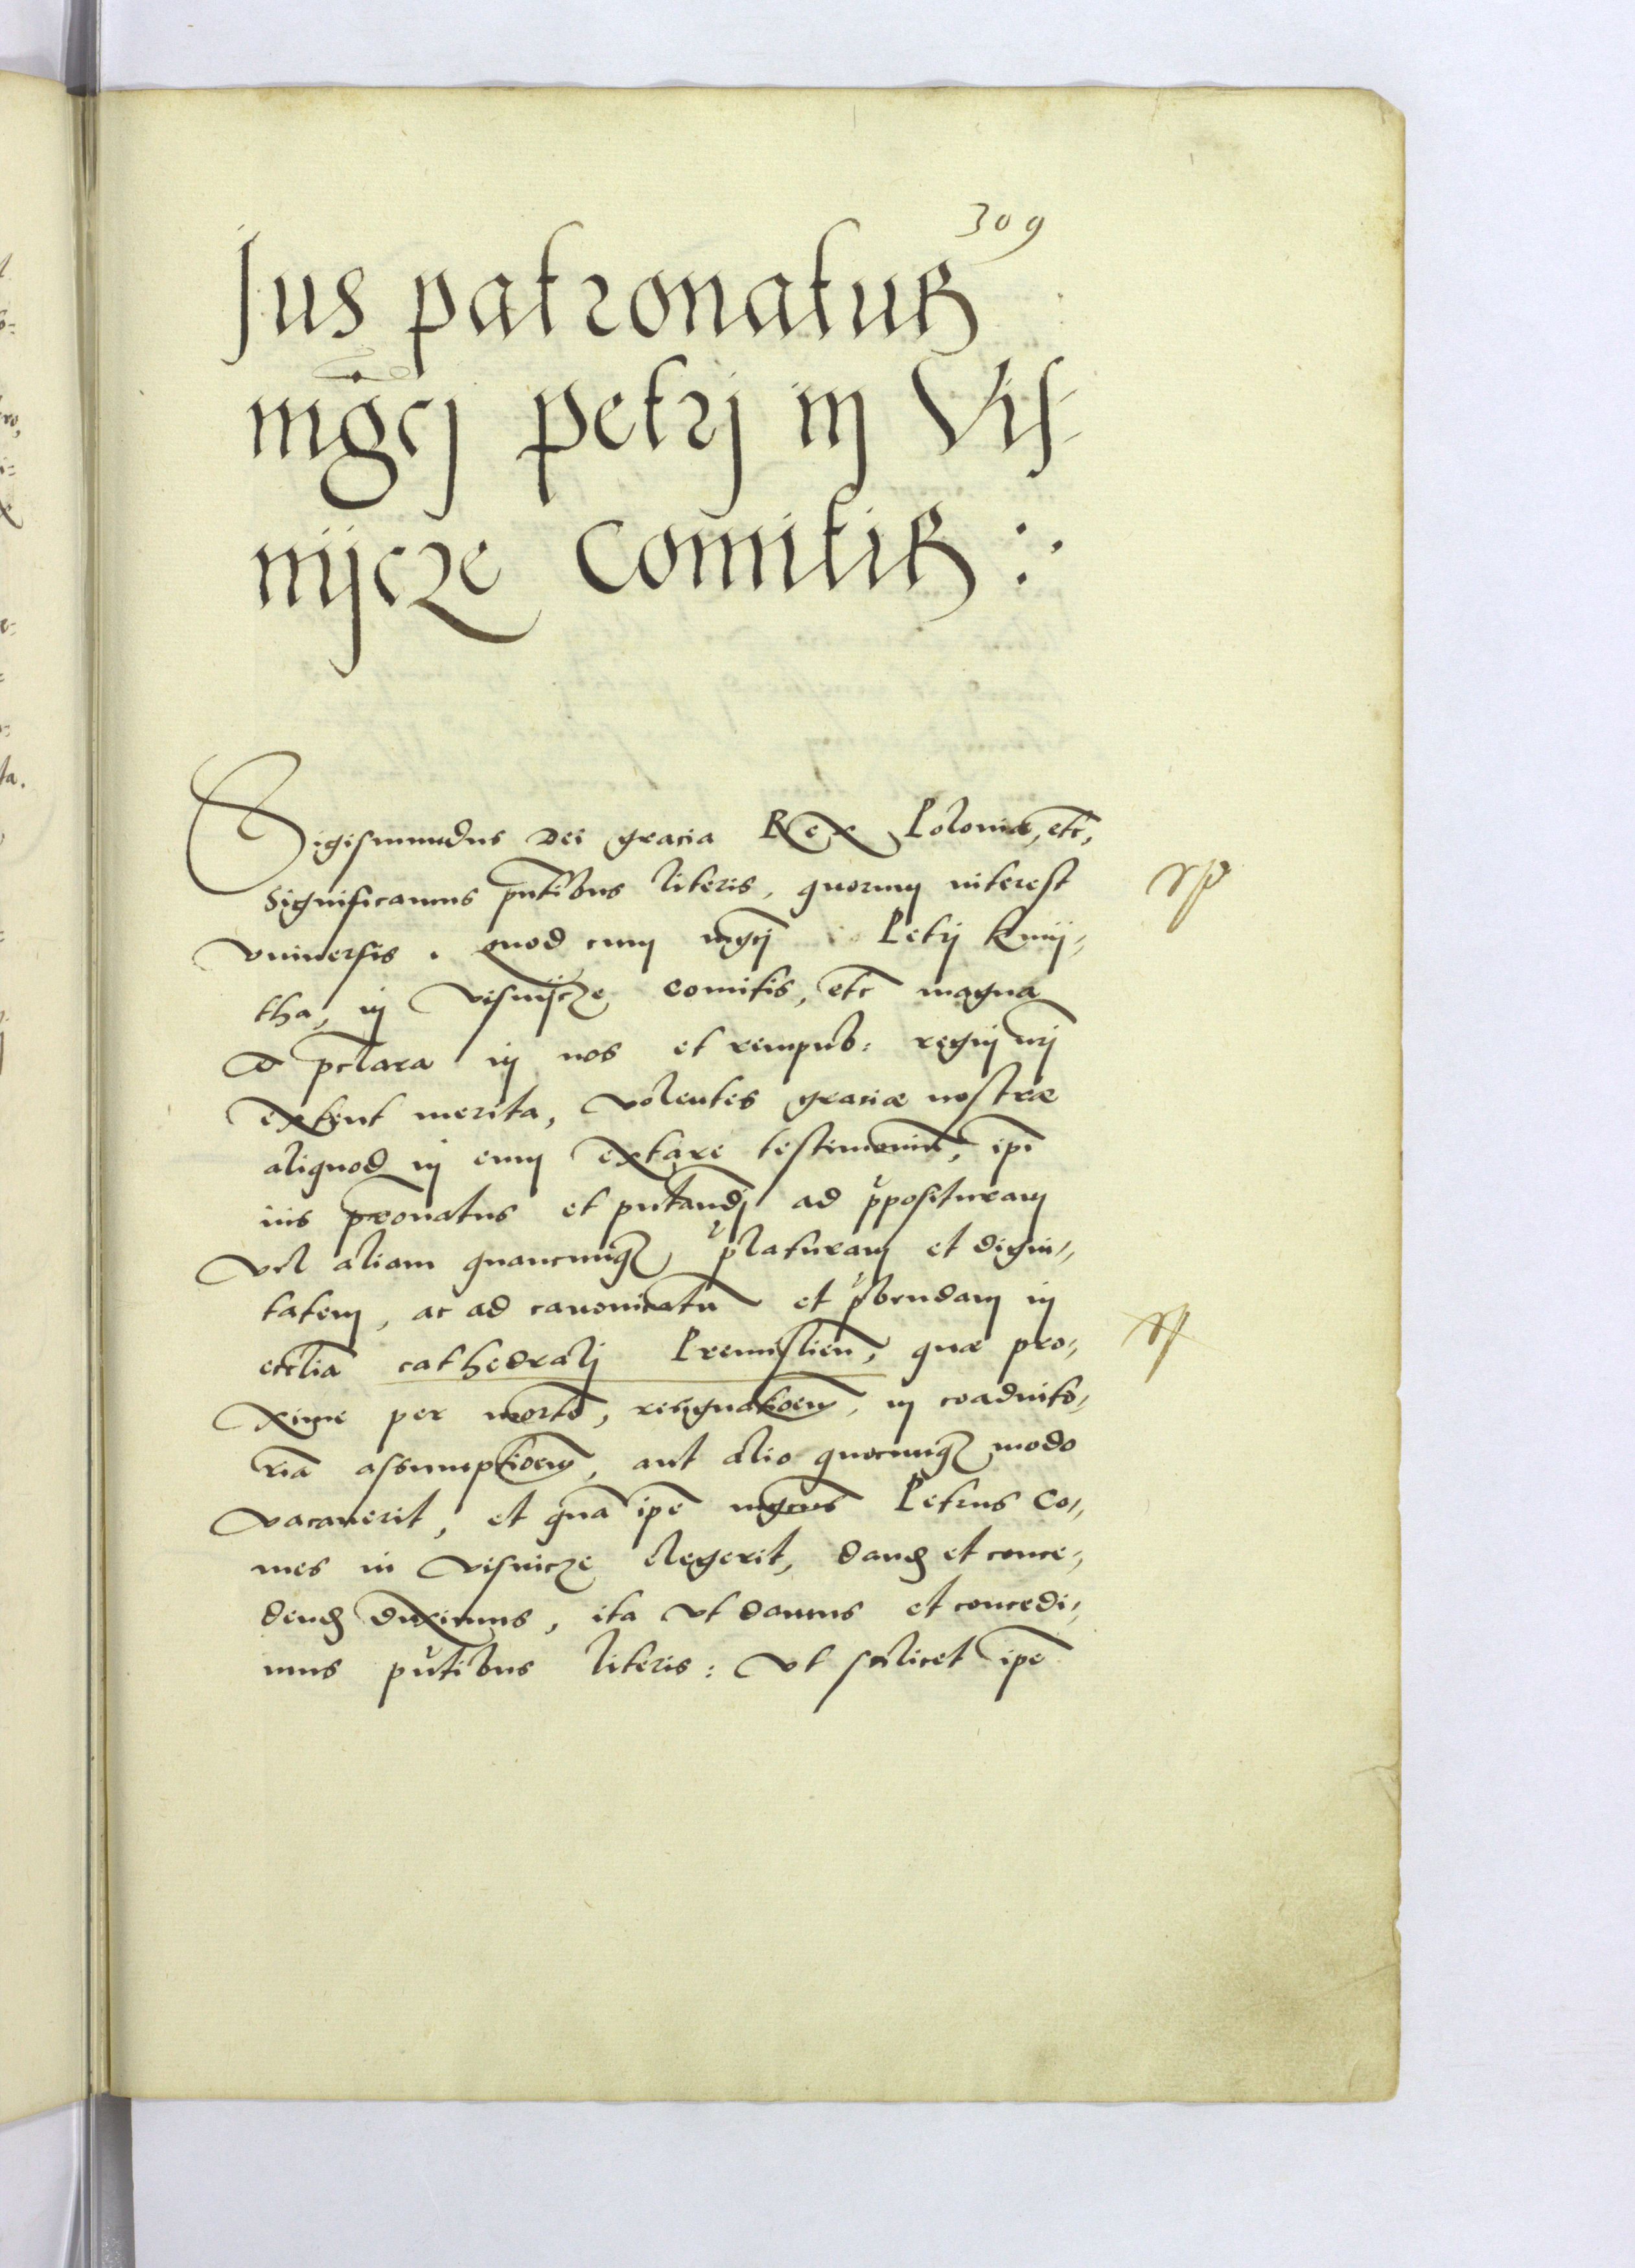 309
Jus patronatus
mgcj petrj in Vis-
nijcze Comitis :
Sigismundus Dei gracia Rex Poloniæ, etc,
Significamus pntibus literis, quorum interest
vniuersis. quod cum mgcj Petrj Kmij-
tha, in Visnijcze comitis, etc magna
et pclara in nos et rempub: regnj nrj
extent merita, volentes graciæ nostræ
aliquod in eum extare testimoniu, ipi
ius pronatus et pntandj ad pposituram
vel aliam quancunqz placturam et digni-
tatem, ac ad canonicatu et pbendam in
ecclia cathedralj Premislien, quæ pro-
xime per morte, resignatioem, in coadiuto-
ria assumptioem, aut alio quocunqz modo
vacauerit, et qua ipe mgcus Petrus Co-
mes in Visnicze elegerit, dand et conce-
dend duximus, ita vt damus et concedi-
mus pntibus literis: vt scilicet ipe